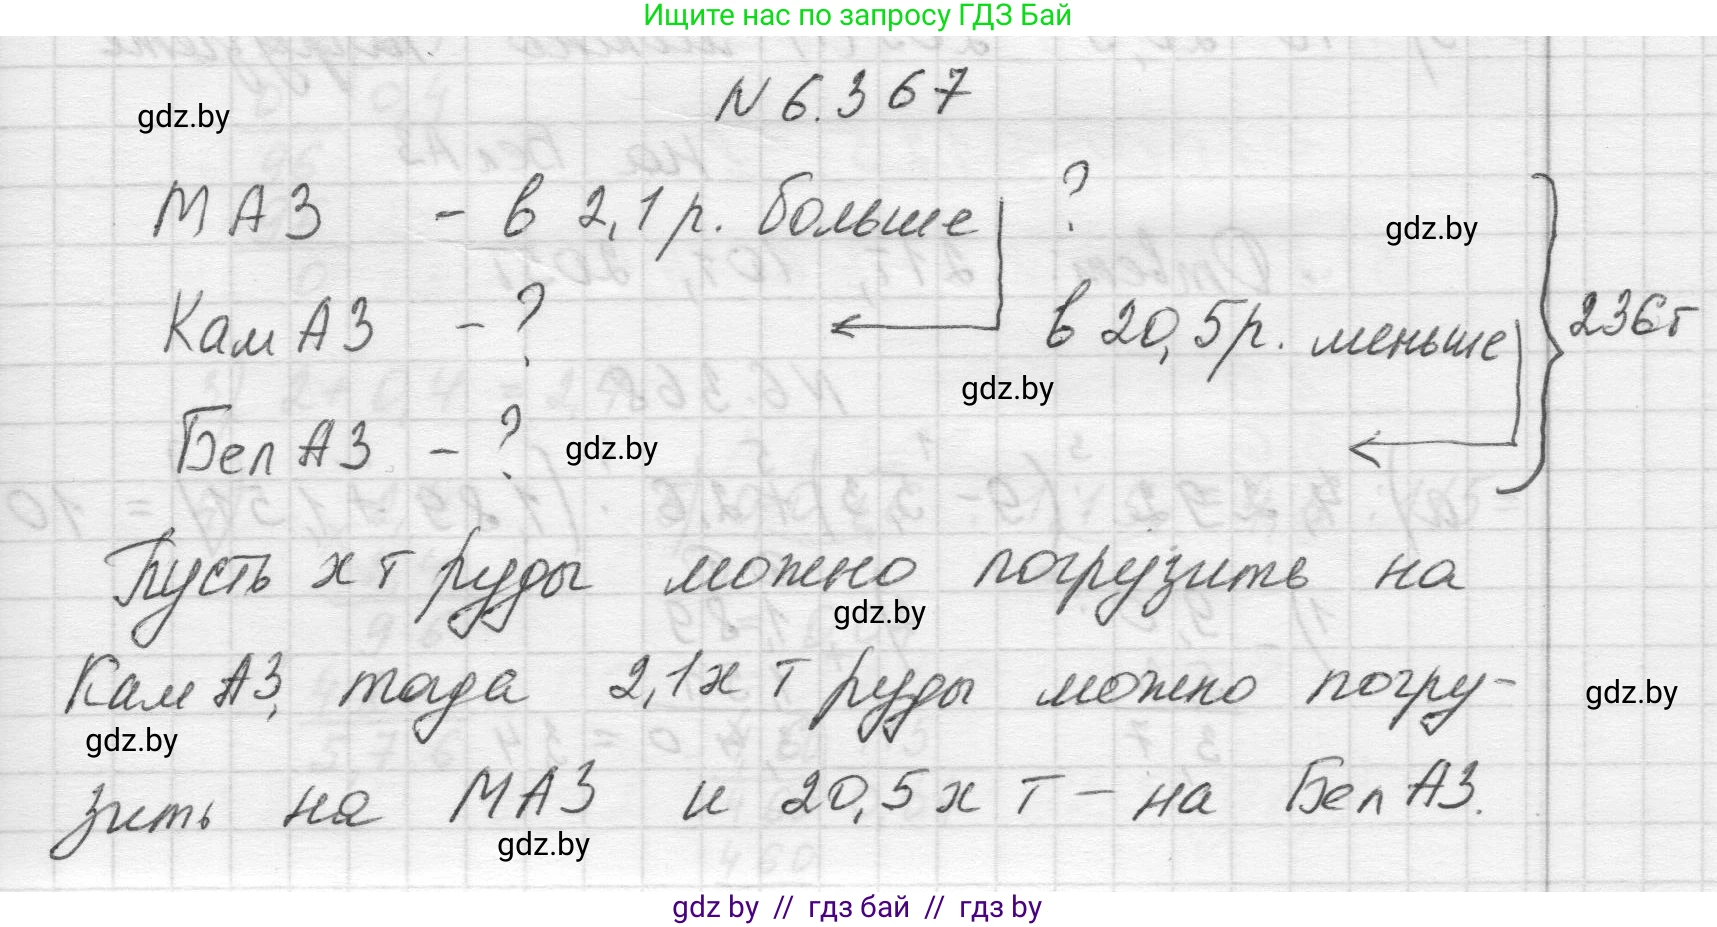 Ищите нас по запросу ГДЗ Бай
N 6.367
gdz.by
МАЗ - в 2,1 р. больше ?
gdz.by
КамАЗ - ? в 20,5 р. меньше 236т
gdz.by
БелАЗ - ? gdz.by
Пусть х т руды можно погрузить на
gdz.by
КамАЗ, тогда 2,1х т руды можно погру-
gdz.by
gdz.by
зить на МАЗ и 20,5х т - на БелАЗ.
gdz.by
gdz by // гдз бай // гдз by